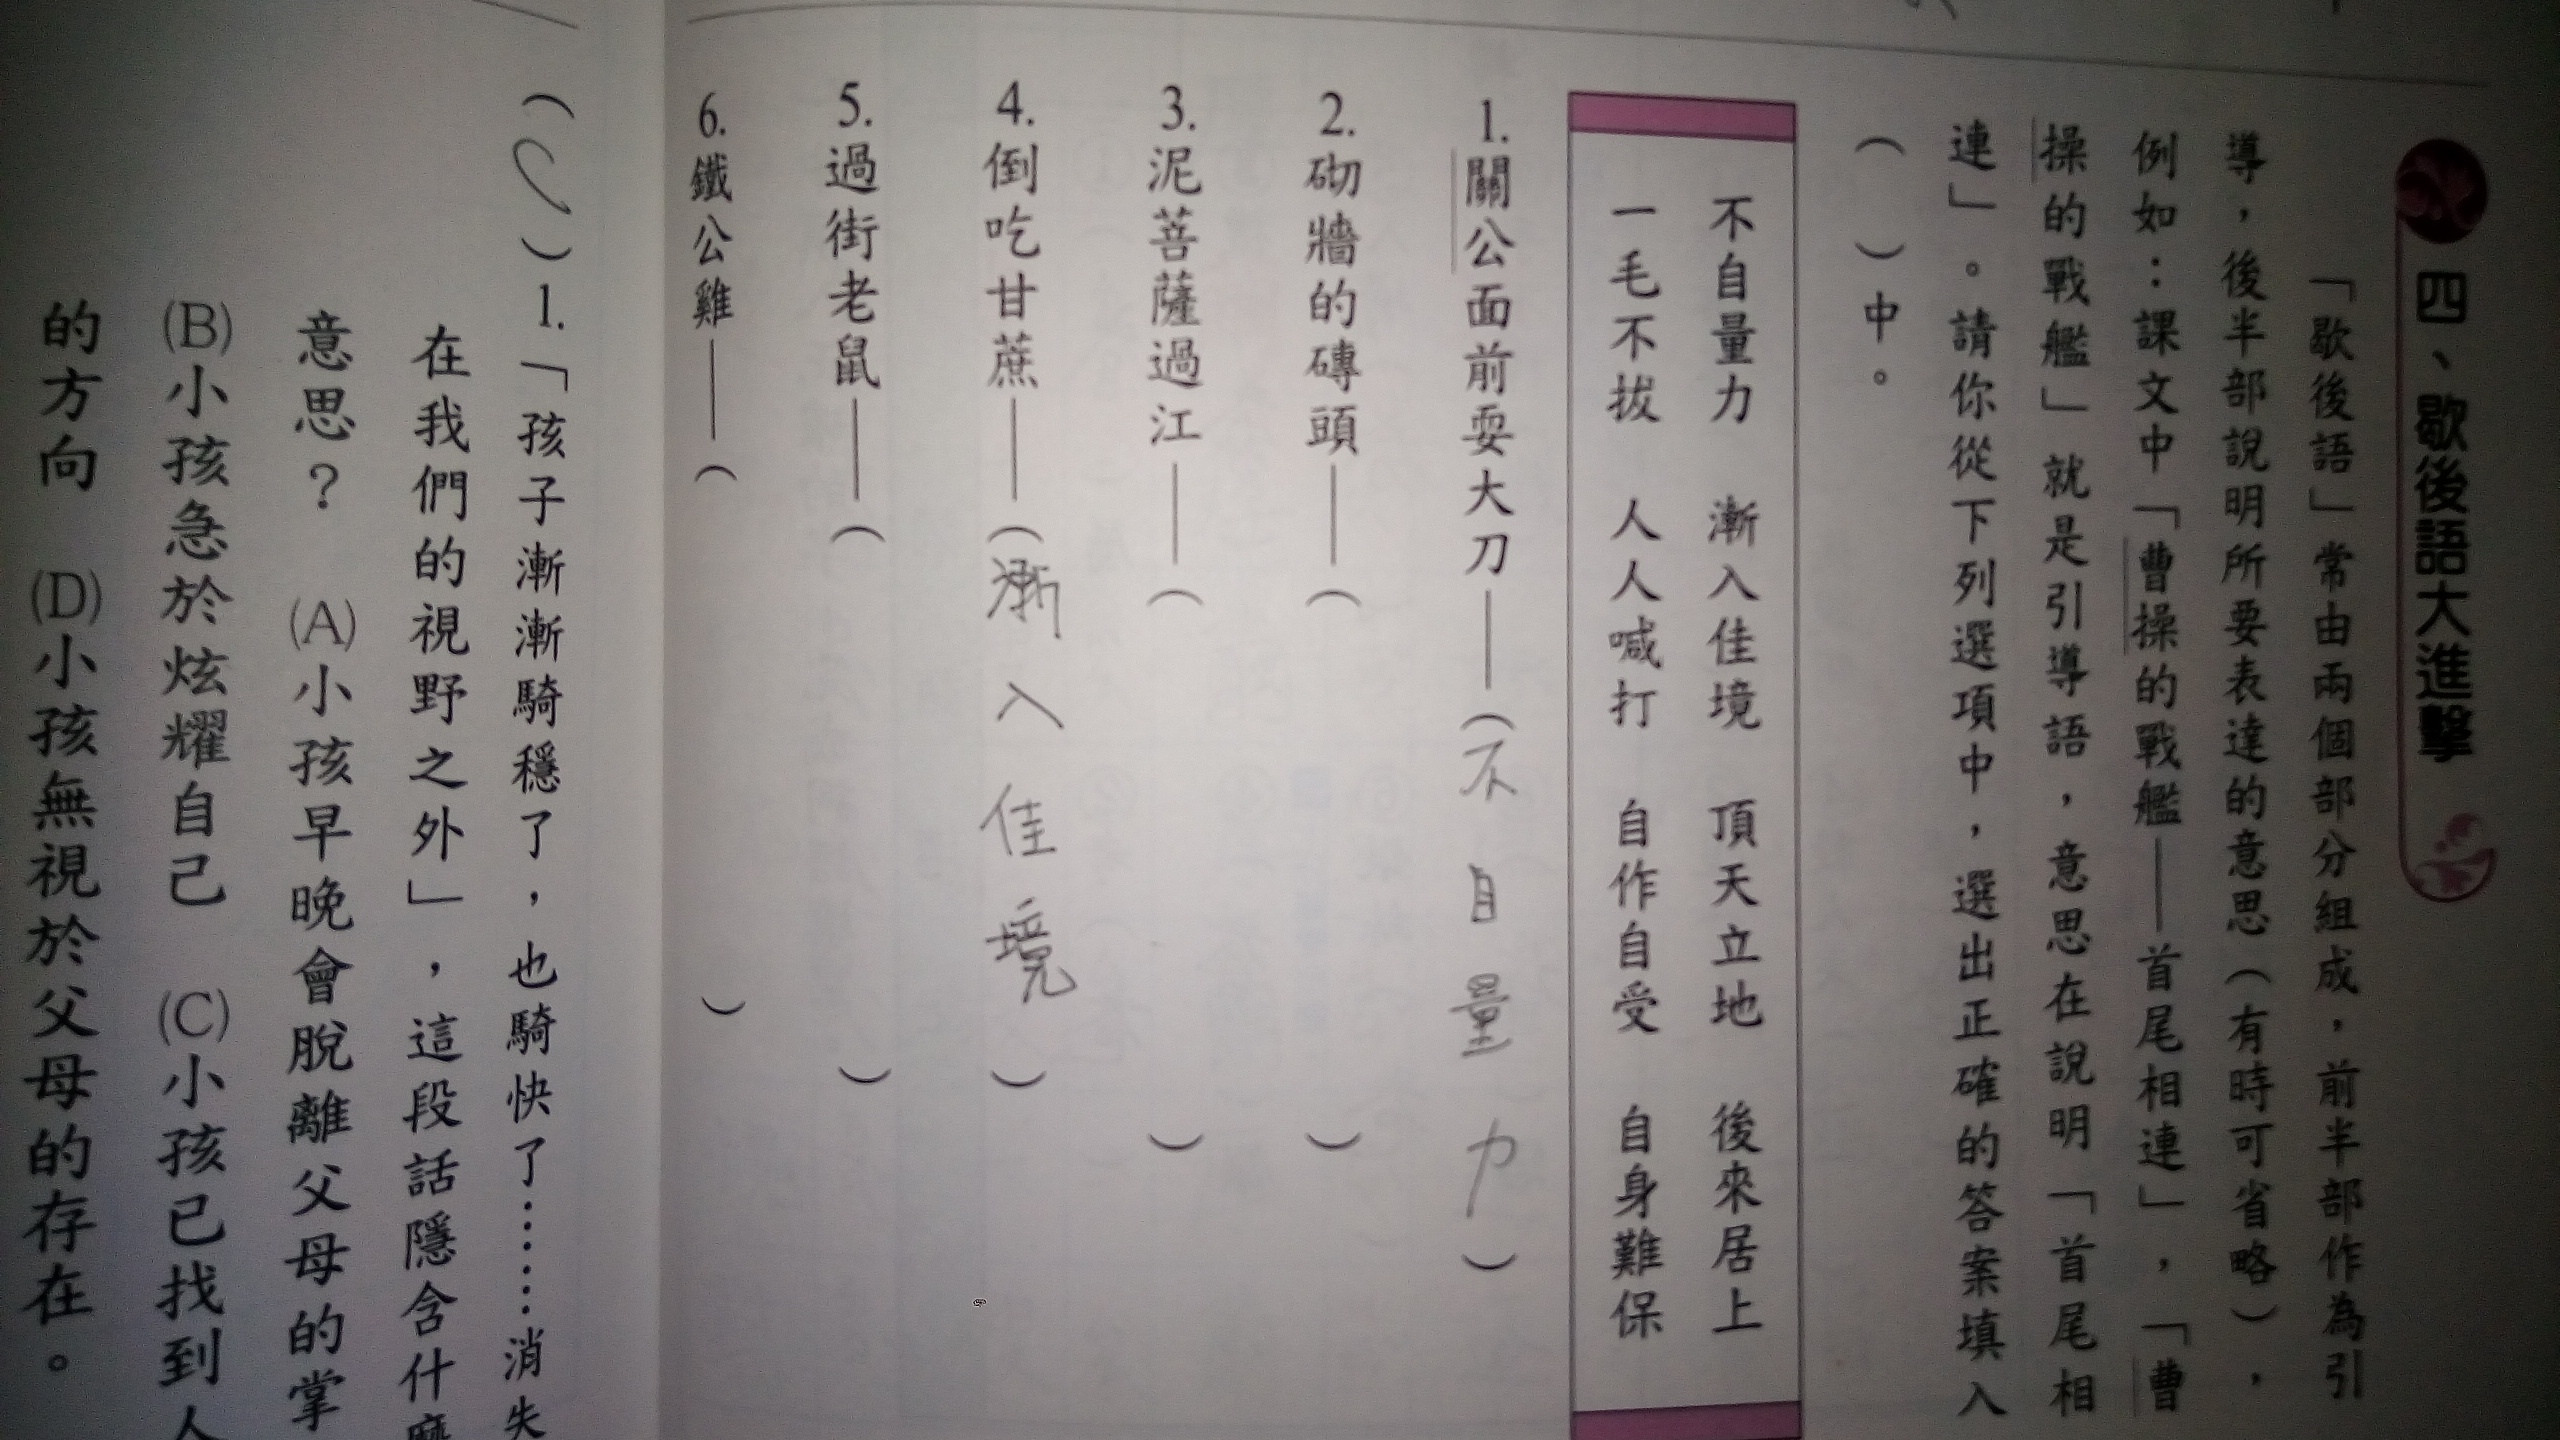 四、歇後語大進擊
「歇後語」常由兩個部分組成，前半部作為引
導，後半部說明所要表達的意思（有時可省略），
例如：課文中「曹操的戰艦——首尾相連」，「曹
操的戰艦」就是引導語，意思在說明「首尾相
連」。請你從下列選項中，選出正確的答案填入
（　）中。
不自量力　漸入佳境　頂天立地　後來居上
一毛不拔　人人喊打　自作自受　自身難保
1.關公面前耍大刀——（不自量力）
2.砌牆的磚頭——（　）
3.泥菩薩過江——（　）
4.倒吃甘蔗——（漸入佳境）
5.過街老鼠——（　）
6.鐵公雞——（　）
（　）1.「孩子漸漸騎穩了，也騎快了……消失
在我們的視野之外」，這段話隱含什麼
意思？　(A)小孩早晚會脫離父母的掌
(B)小孩急於炫耀自己　(C)小孩已找到人
的方向　(D)小孩無視於父母的存在。